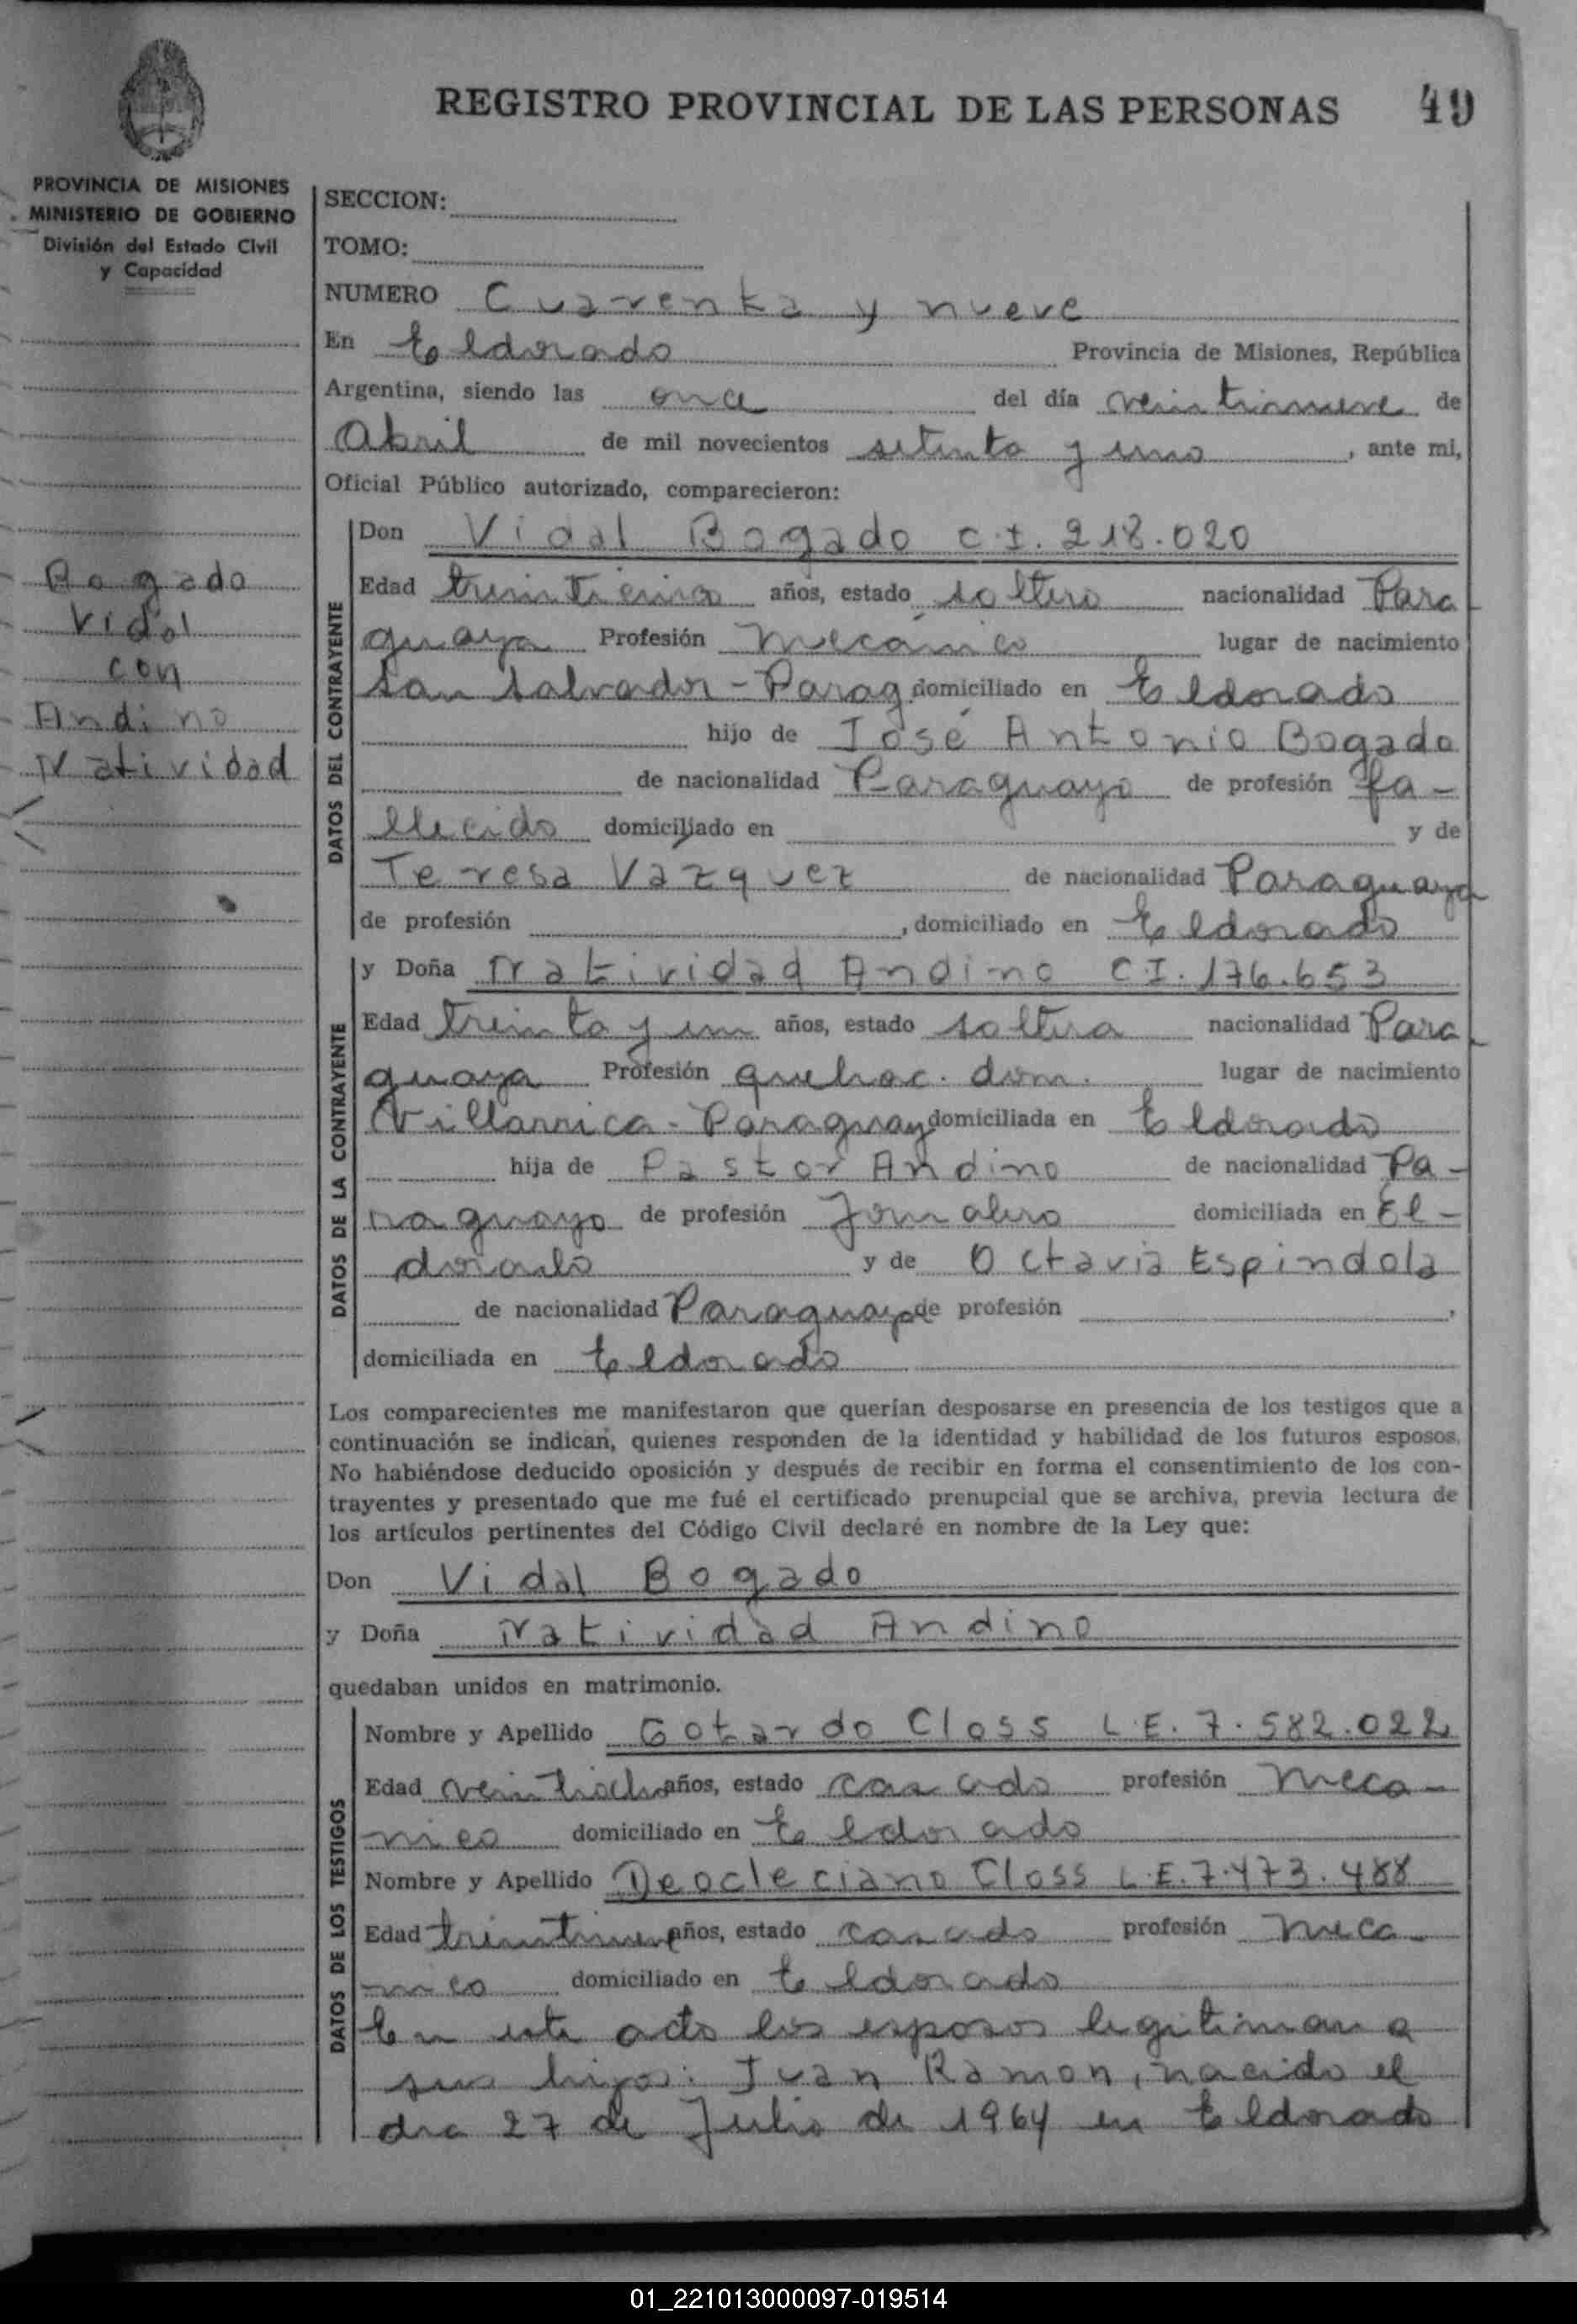 REGISTRO PROVINCIAL DE LAS PERSONAS 49
PROVINCIA DE MISIONES
MINISTERIO DE GOBIERNO
División del Estado Civil
y Capacidad
Bogado
Vidal
con
Andino
Natividad
SECCION:
TOMO:
NUMERO Cuarenta y nueve
En Eldorado Provincia de Misiones, República
Argentina, siendo las once del día veintinueve de
Abril de mil novecientos setenta y uno, ante mi,
Oficial Público autorizado, comparecieron:
DATOS DEL CONTRAYENTE
Don Vidal Bogado C.I. 218.020
Edad años, estado soltero nacionalidad Para
guaya Profesión Mecánico lugar de nacimiento
San Salvador - Parag. domiciliado en Eldorado
hijo de José Antonio Bogado
de nacionalidad Paraguayo de profesión fa-
llecido domiciliado en y de
Teresa Vazquez de nacionalidad Paraguaya
de profesión , domiciliado en Eldorado
DATOS DE LA CONTRAYENTE
y Doña Natividad Andino C.I. 176.653
Edad treinta y un años, estado soltera nacionalidad Para
guaya Profesión quehac. dom. lugar de nacimiento
Villarrica - Paraguay domiciliada en Eldorado
hija de Pastor Andino de nacionalidad Pa-
raguayo de profesión Jornalero domiciliada en El-
dorado y de Octavia Espindola
de nacionalidad Paraguaya de profesión ,
domiciliada en Eldorado
Los comparecientes me manifestaron que querían desposarse en presencia de los testigos que a
continuación se indican, quienes responden de la identidad y habilidad de los futuros esposos.
No habiéndose deducido oposición y después de recibir en forma el consentimiento de los con-
trayentes y presentado que me fué el certificado prenupcial que se archiva, previa lectura de
los artículos pertinentes del Código Civil declaré en nombre de la Ley que:
Don Vidal Bogado
y Doña Natividad Andino
quedaban unidos en matrimonio.
DATOS DE LOS TESTIGOS
Nombre y Apellido Gotardo Closs L.E. 7.582.022
Edad veintiocho años, estado casado profesión Meca-
nico domiciliado en Eldorado
Nombre y Apellido Deocleciano Closs L.E. 7.473.488
Edad treintinueve años, estado casado profesión Meca-
nico domiciliado en Eldorado
En este acto los esposos legitiman a
sus hijos: Juan Ramon, nacido el
dia 27 de Julio de 1964 en Eldorado
01_221013000097-019514